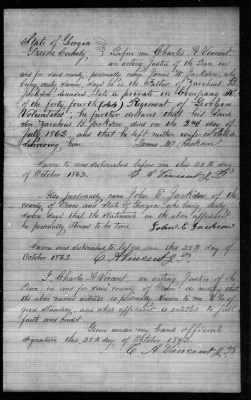 State of Georgia
Greene County Before me Charles A Vincent
an acting Justice of the Peace in
and for said county, personally came James M Jackson, who
being duly sworn, says he is the Father of Zacariah E
Jackson deceased, late a private in Company
of the forty, fourth (44) Regiment of Georgia
Volunteers, he further declares that his said
son Zacariah E Jackson, died on the 3rd day of
July 1862, and that he left neither wife or child
surviving him James M Jackson
Sworn to and subscribed before me this 25th day
of October 1862. C A Vincent J P
Also personally came John E Jackson, of the
county of Greene and State of Georgia, who being duly
sworn says that the statements in the above affidavit
he personally knows to be true John E Jackson
Sworn and subscribed to before me this 25th day of
October 1862 C A Vincent J P
I Charles A Vincent, an acting Justice of the
Peace in and for said county of Greene do certify that
the above named witness is personally known to me to be of
good standing, and whose affidavit is entitled to full
faith and credit
Given under my hand official
signature this 25th day of October 1862
C A Vincent J P